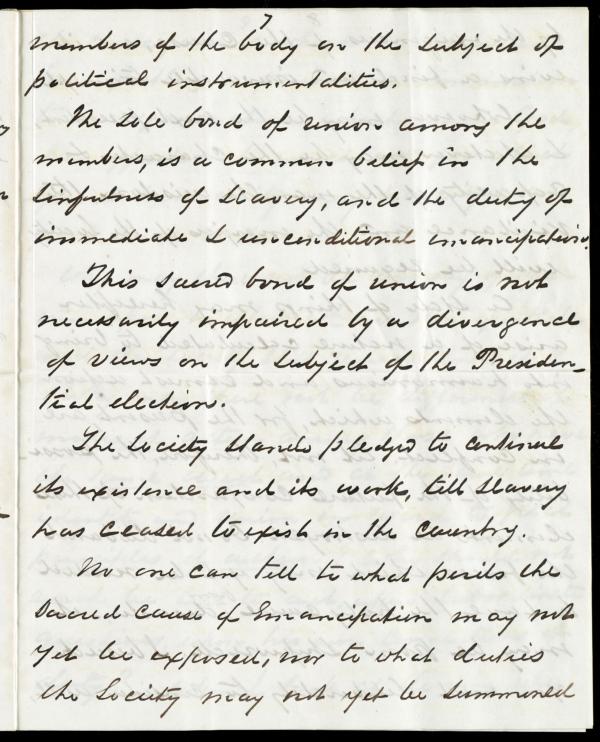 7
members of the body on the subject of
political instrumentalities.
The sole bond of union among the
members, is a common belief in the
sinfulness of slavery, and the duty of
immediate & unconditional emancipation.
This sacred bond of union is not
necessarily impaired by a divergence
of views on the subject of the Presiden-
tial election.
The Society stands pledged to continue
its existence and its work, till slavery
has ceased to exist in the country.
No one can tell to what perils the
sacred cause of Emancipation may not
yet be exposed, nor to what duties
the Society may not yet be summoned